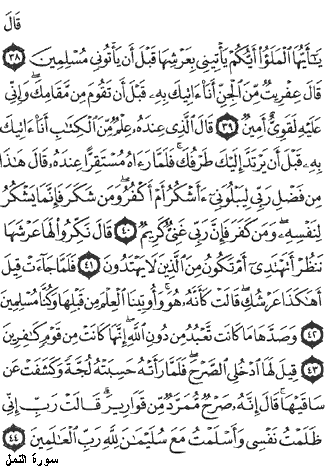 قَالَ
يَٰٓأَيُّهَا ٱلْمَلَؤُا۟ أَيُّكُمْ يَأْتِينِى بِعَرْشِهَا قَبْلَ أَن يَأْتُونِى مُسْلِمِينَ ٣٨
قَالَ عِفْرِيتٌ مِّنَ ٱلْجِنِّ أَنَا۠ ءَاتِيكَ بِهِۦ قَبْلَ أَن تَقُومَ مِن مَّقَامِكَ ۖ وَإِنِّى
عَلَيْهِ لَقَوِىٌّ أَمِينٌ ٣٩ قَالَ ٱلَّذِى عِندَهُۥ عِلْمٌ مِّنَ ٱلْكِتَٰبِ أَنَا۠ ءَاتِيكَ
بِهِۦ قَبْلَ أَن يَرْتَدَّ إِلَيْكَ طَرْفُكَ ۚ فَلَمَّا رَءَاهُ مُسْتَقِرًّا عِندَهُۥ قَالَ هَٰذَا
مِن فَضْلِ رَبِّى لِيَبْلُوَنِىٓ ءَأَشْكُرُ أَمْ أَكْفُرُ ۖ وَمَن شَكَرَ فَإِنَّمَا يَشْكُرُ
لِنَفْسِهِۦ ۖ وَمَن كَفَرَ فَإِنَّ رَبِّى غَنِىٌّ كَرِيمٌ ٤٠ قَالَ نَكِّرُوا۟ لَهَا عَرْشَهَا
نَنظُرْ أَتَهْتَدِىٓ أَمْ تَكُونُ مِنَ ٱلَّذِينَ لَا يَهْتَدُونَ ٤١ فَلَمَّا جَآءَتْ قِيلَ
أَهَٰكَذَا عَرْشُكِ ۖ قَالَتْ كَأَنَّهُۥ هُوَ ۚ وَأُوتِينَا ٱلْعِلْمَ مِن قَبْلِهَا وَكُنَّا مُسْلِمِينَ
٤٢ وَصَدَّهَا مَا كَانَت تَّعْبُدُ مِن دُونِ ٱللَّهِ ۖ إِنَّهَا كَانَتْ مِن قَوْمٍ كَٰفِرِينَ
٤٣ قِيلَ لَهَا ٱدْخُلِى ٱلصَّرْحَ ۖ فَلَمَّا رَأَتْهُ حَسِبَتْهُ لُجَّةً وَكَشَفَتْ عَن
سَاقَيْهَا ۚ قَالَ إِنَّهُۥ صَرْحٌ مُّمَرَّدٌ مِّن قَوَارِيرَ ۗ قَالَتْ رَبِّ إِنِّى
ظَلَمْتُ نَفْسِى وَأَسْلَمْتُ مَعَ سُلَيْمَٰنَ لِلَّهِ رَبِّ ٱلْعَٰلَمِينَ ٤٤
سورة النمل